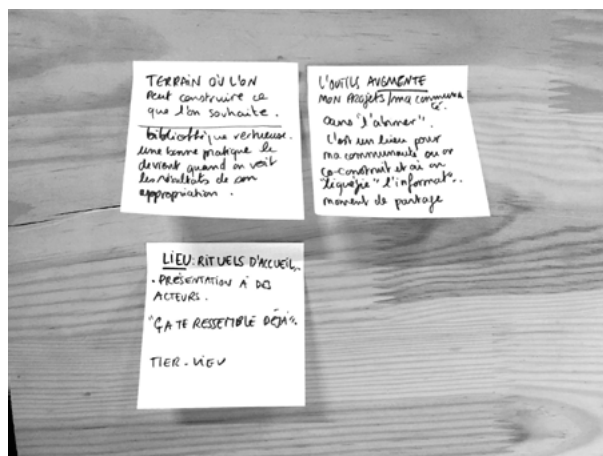 TERRAIN OÙ L'ON
Peut construire ce
que l'on souhaite.
bibliothèque vertueuse.
une bonne pratique le
devient quand on voit
les résultats de son
appropriation.
L'OUTILS AUGMENTE
MON PROJETS/ma communau
té.
sans "l'abimer".
C'est un lieu pour
ma communauté ou on
co-construit et où on
"liquéfie" l'informat°..
moment de partage
LIEU: RITUELS D'ACCUEIL.
. PRÉSENTATION À DES
ACTEURS.
"ÇA TE RESSEMBLE DÉJÀ".
TIER-LIEU